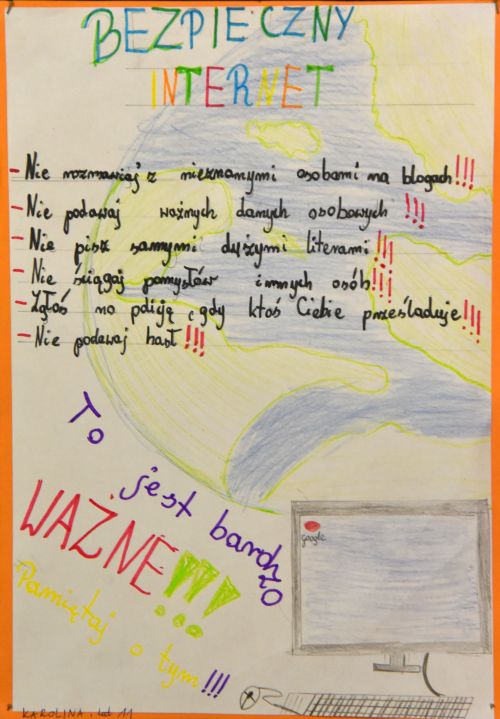 BEZPIECZNY
INTERNET
- Nie rozmawiaj z nieznanymi osobami na blogach!!!
- Nie podawaj ważnych danych osobowych !!!
- Nie pisz samymi dużymi literami!!!
- Nie ściągaj pomysłów innych osób!!!
- Zgłoś na policję gdy ktoś Ciebie prześladuje!!!
- Nie podawaj haseł!!!
To jest bardzo
WAŻNE!!!
Pamiętaj o tym!!!
google
KAROLINA, lat 11